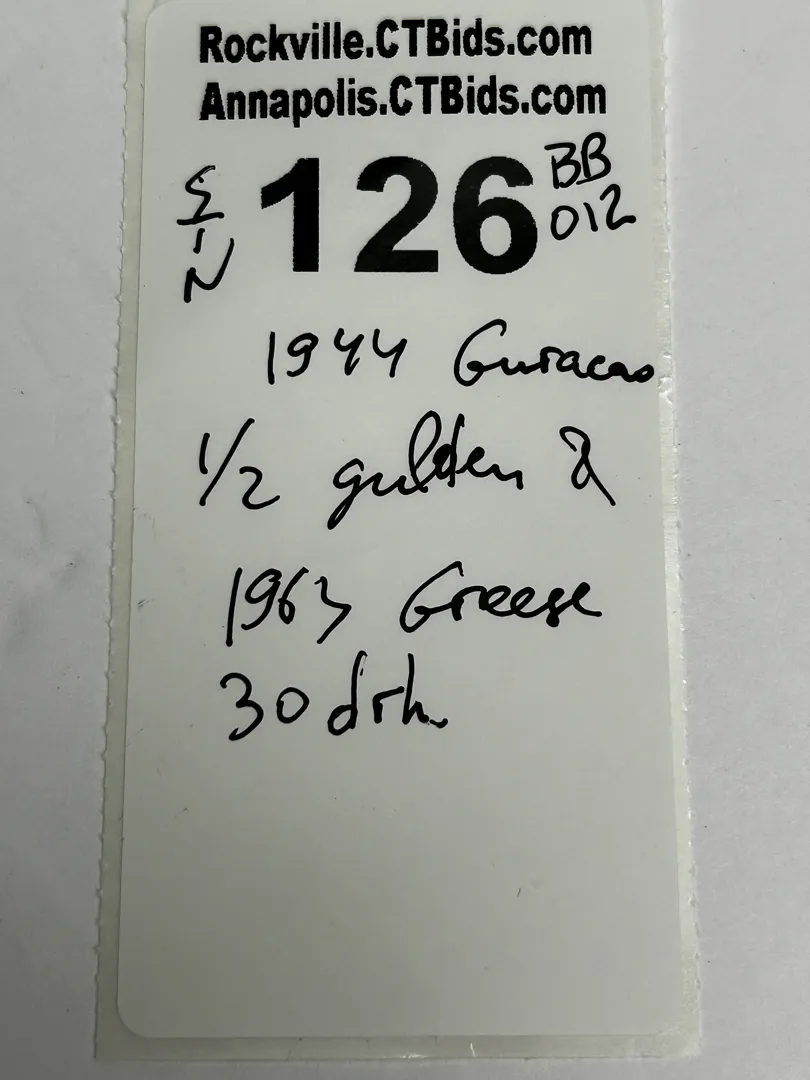 Rockville.CTBids.com
Annapolis.CTBids.com
126
BB
012
1944 Curacao
1/2 gulden &
1963 Greese
30 drh.